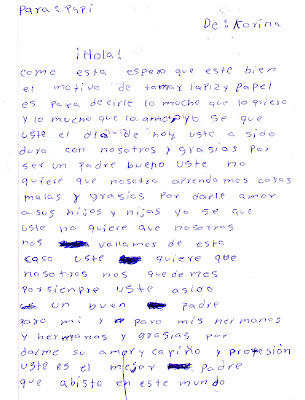 Para: Papi
De: Korina
¡Hola!
como esta espero que este bien
el motivo de tomar lapiz y papel
es para decirle lo mucho que lo quiero
y lo mucho que lo amo yo se que
uste el dia de hoy uste a sido
duro con nosotros y grasias por
ser un padre bueno uste no
quiere que nosotro aprendamos cosas
malas y grasias por darle amor
a sus hijos y hijas yo se que
uste no quiere que nosotros
nos vallamos de esta
casa uste quiere que
nosotros nos quedemos
porsienpre uste asido
un buen padre
para mi y para mis hermanos
y hermanas y grasias por
darme su amor y cariño y
uste es el mejor padre
que abisto en este mundo